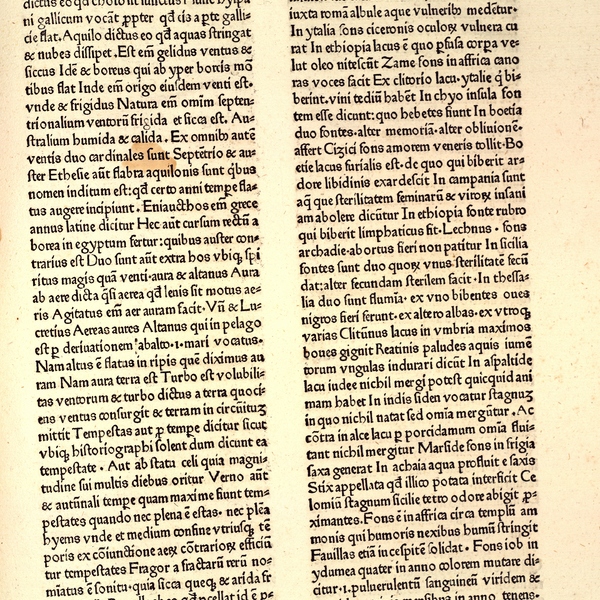 ni gallicum vocāt ꝓpter qd̄ cis a ꝑte galli-
cie flat. Aquilo dictus eo qd̄ aquas stringat
& nubes dissipet. Est em̄ gelidus ventus &
siccus Idē & boreus qui ab yper boreis mō
tibus flat Inde em̄ origo eiusdem venti est.
vnde & frigidus Natura em̄ omīm septen-
trionalium ventorū frigida et sicca est. Au-
stralium humida & calida. Ex omnibꝰ autē
ventis duo cardinales sunt Septētrio & au-
ster Ethesie aūt flabra aquilonis sunt qbus
nomen inditum est: qd̄ certo anni tempe fla-
tus augere incipiunt. Eniaucthos em̄ grece
annus latine dicitur Hec aūt cursum rectū a
borea in egyptum fertur: quibus auster con-
trarius est Duo sunt aūt extra hos vbiqꝫ spi
ritus magis quā venti aura & altanus Aura
ab aere dicta qsi aerea qd̄ lenis sit motus ae-
ris Agitatus em̄ aer auram facit. Vn̄ & Lu-
cretius Aereas aures Altanus qui in pelago
est ꝑ deriuationem abalto.i. mari vocatus.
Nam altus ē flatus in ripis quē diximus au
ram Nam aura terra est Turbo est volubili-
tas ventorum & turbo dictus a terra quoci-
ens ventus consurgit & terram in circūitūꝫ
mittit Tempestas aut ꝑ tempe dicitur sicut
vbiqꝫ historiographi solent dum dicunt ea
tempestate. Aut ab statu celi quia magni-
tudine sui multis diebus oritur Verno aūt
& autūnali tempe quam maxime fiunt tem-
pestates quando nec plena ē estas. nec plēa
hyems vnde et medium confine vtriusqꝫ tē
poris ex cōiunctione aerꝫ cōtrarioꝝ efficiū
tur tempestates Fragor a fractarū rerū no-
miatus ē sonitu. quia sicca queqꝫ & arida fr
iuxta romā albule aque vulneribꝰ medētur.
In ytalia fons ciceronis oculoꝝ vulnera cu
rat In ethiopia lacus ē quo ꝑfusa corpa ve-
lut oleo nitescūt Zame fons in affrica cano
ras voces facit Ex clitorio lacu. ytalie q bi-
berint. vini tediū habēt In chyo insula fon
tem esse dicunt: quo hebetes fiunt In boetia
duo fontes. alter memoriā. alter obliuionē.
affert Cizici fons amorem veneris tollit. Bo
etie lacus furialis est. de quo qui biberit ar-
dore libidinis exardescit In campania sunt
aq̄ que sterilitatem feminarū & viroꝝ insani
am abolere dicūtur In ethiopia fonte rubro
qui biberit limphaticus fit. Lechnus. fons
archadie. abortus fieri non patitur In sicilia
fontes sunt duo quoꝝ vnus sterilitatē fecū
dat: alter fecundam sterilem facit. In thessa-
lia duo sunt flumīa. ex vno bibentes oues
nigros fieri ferunt. ex altero albas. ex vtroqꝫ
varias Clitūnus lacus in vmbria maximos
boues gignit Reatinis paludes aquis iumē
torum vngulas indurari dicūt In aspaltide
lacu iudee nichil mergi potest quicquid ani
mam habet In indis siden vocatur stagnuꝫ
in quo nichil natat sed omīa mergūtur. Ac
cōtra in alce lacu ꝑ porcidamum omīa flui-
tant nichil mergitur Marside fons in frigia
saxa generat In achaia aqua profluit e saxis
Stix appellata qd̄ illico potata interficit Ce
lomiū stagnum sicilie tetro odore abigit ꝓ-
ximantes. Fons ē in affrica circa templū am
monis qui humoris nexibus humū stringit
Fauillas etiā in cespitē solidat. Fons iob in
ydumea quater in anno colorem mutare di-
citur.i. puluerulentū sanguineū viridem &